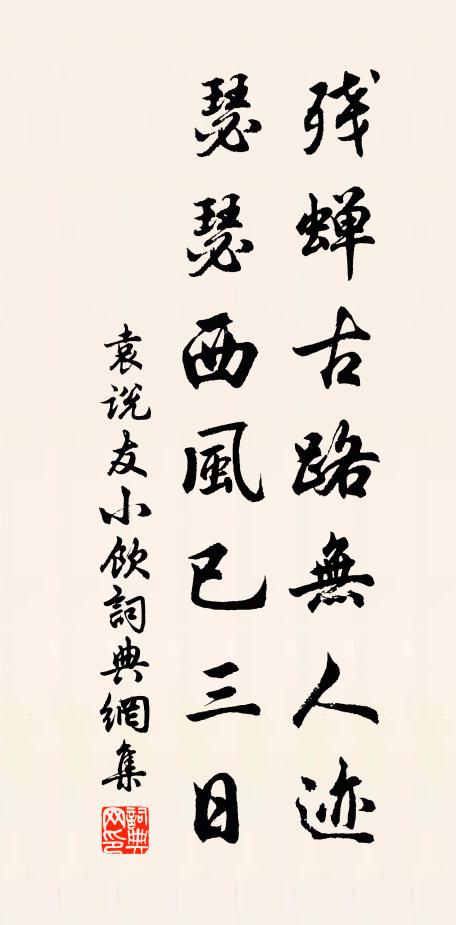 残蝉古路無人迹
瑟瑟西風已三日
袁说友小飲詞典網集
詞典網印